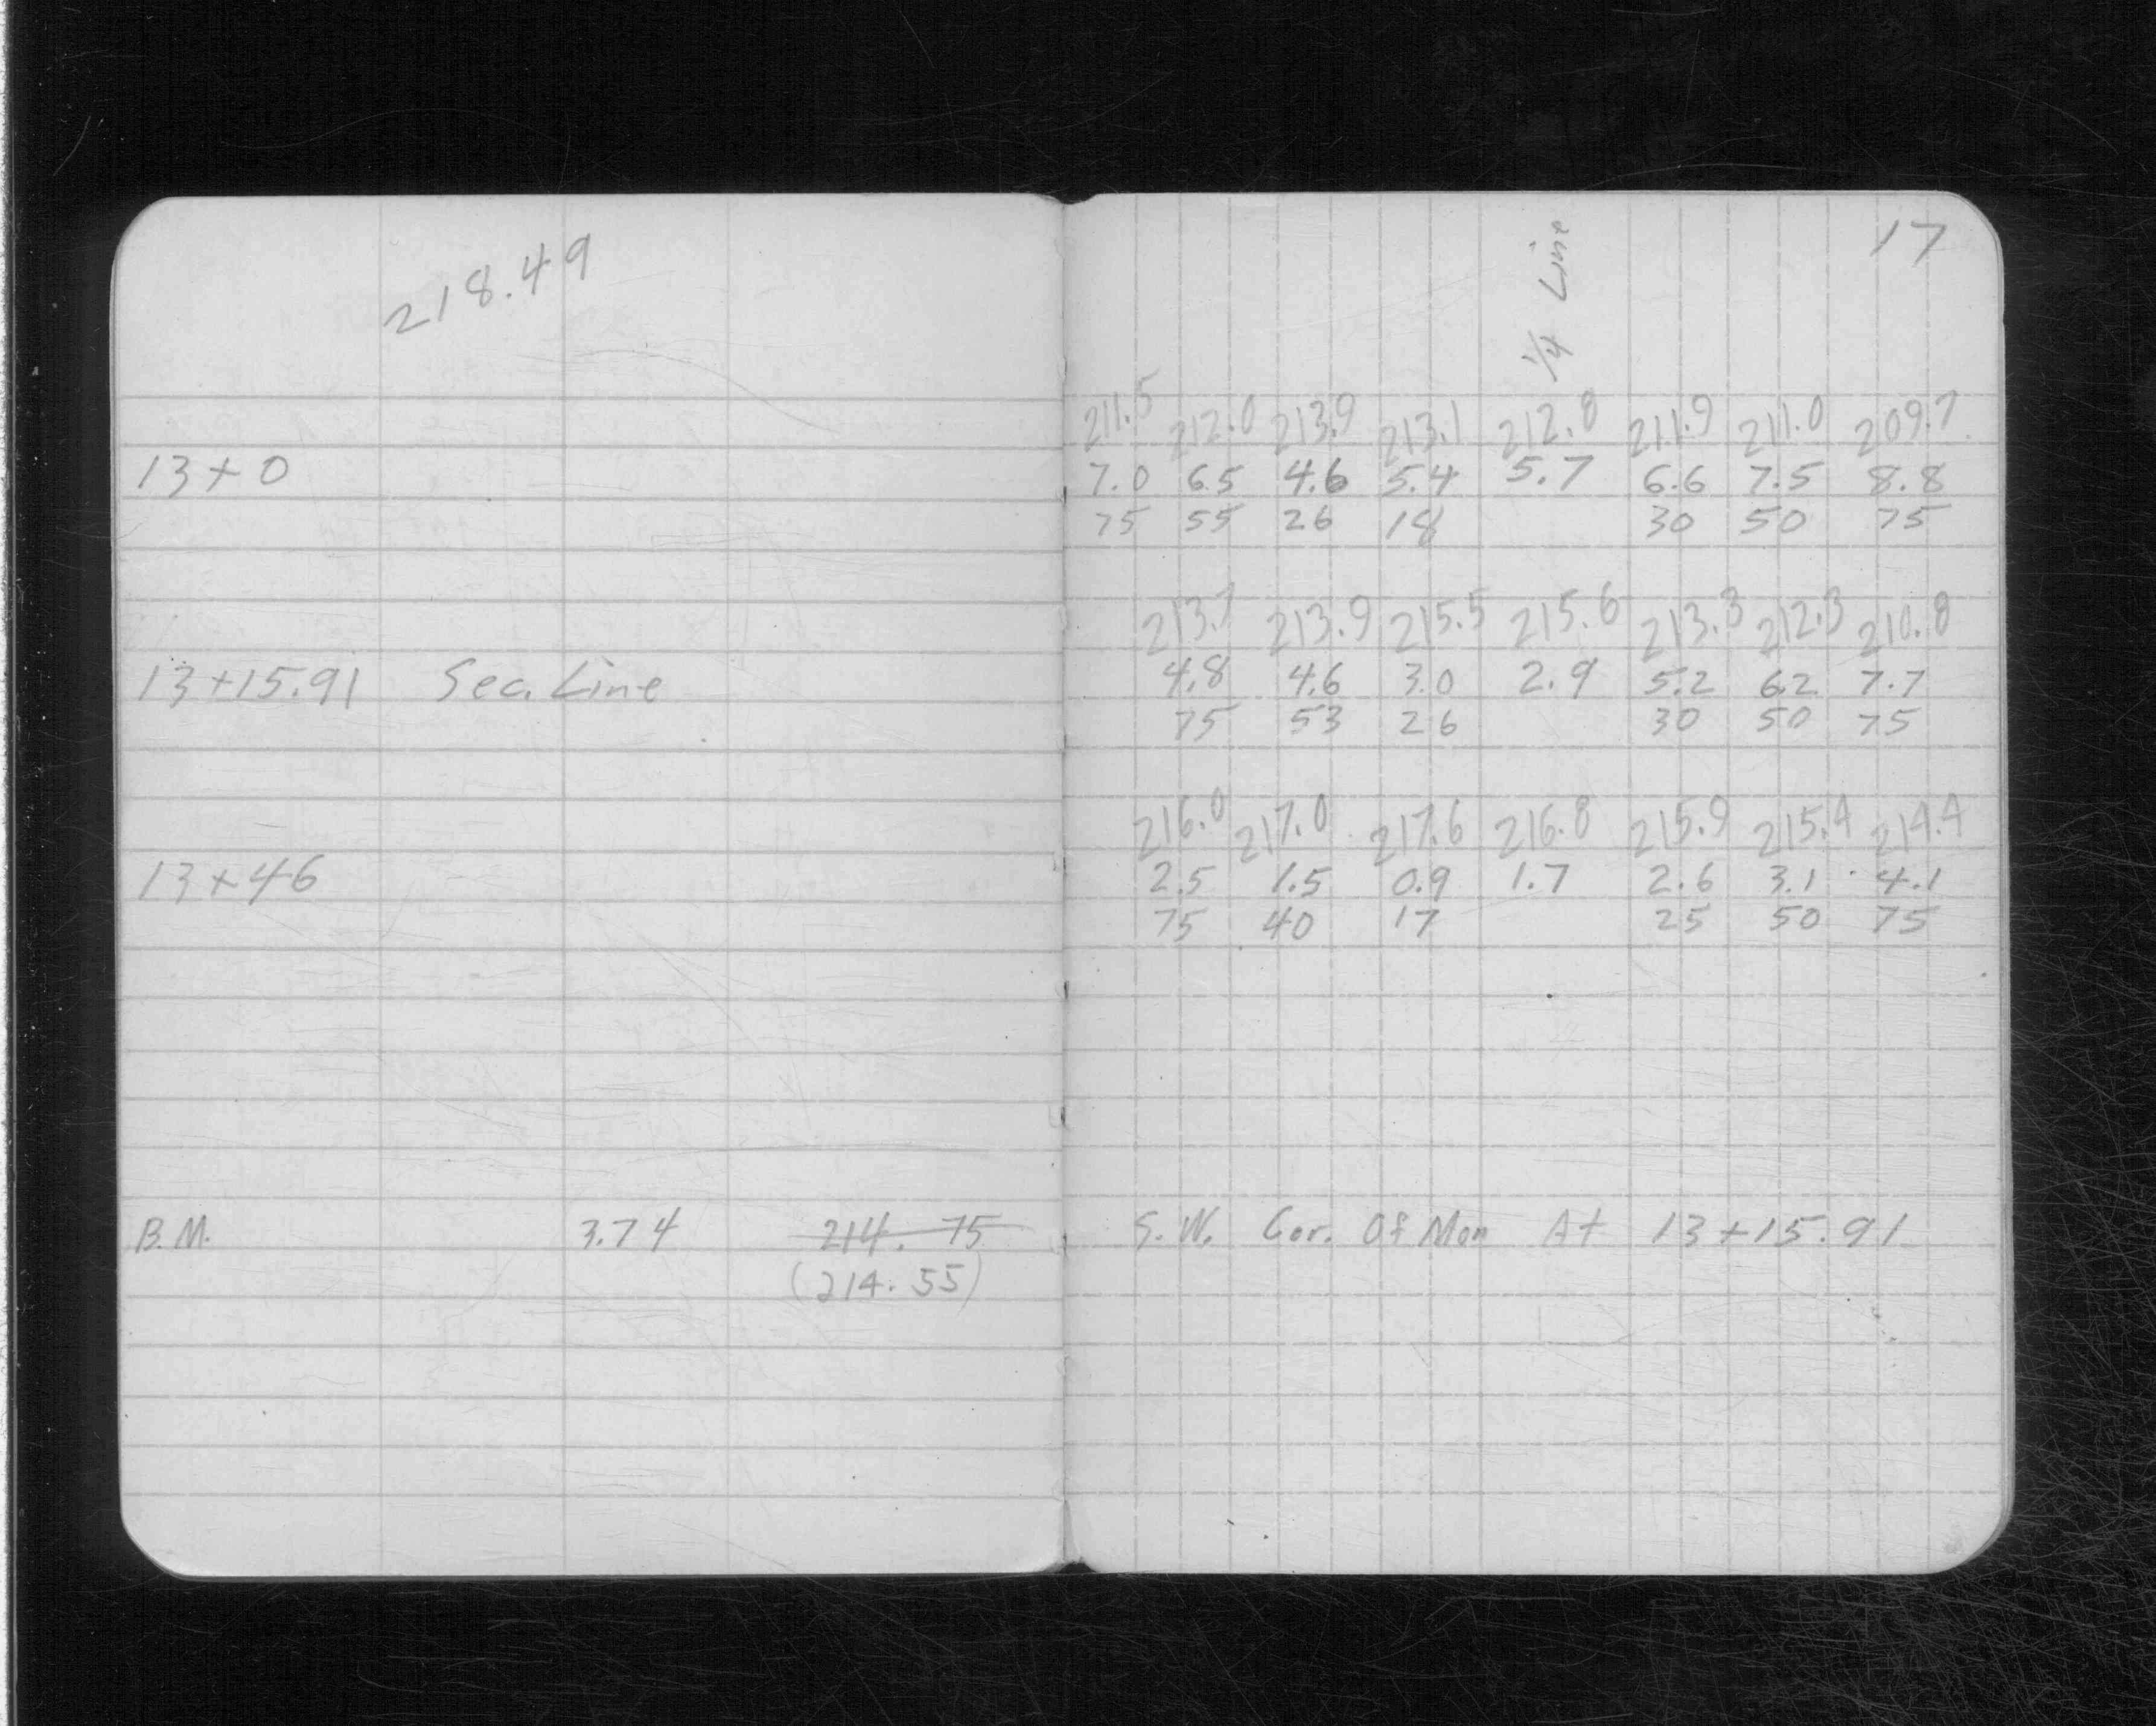 218.49
17
1/4 Line
211.5 212.0 213.9 213.1 212.8 211.9 211.0 209.7
13+0 7.0 6.5 4.6 5.4 5.7 6.6 7.5 8.8
75 55 26 18 30 50 75
213.7 213.9 215.5 215.6 213.3 212.3 210.8
13+15.91 Sec. Line 4.8 4.6 3.0 2.9 5.2 6.2 7.7
75 53 26 30 50 75
216.0 217.0 217.6 216.8 215.9 215.4 214.4
13+46 2.5 1.5 0.9 1.7 2.6 3.1 4.1
75 40 17 25 50 75
B.M. 3.74 214.75 S.W. Cor. Of Mon At 13+15.91
(214.55)